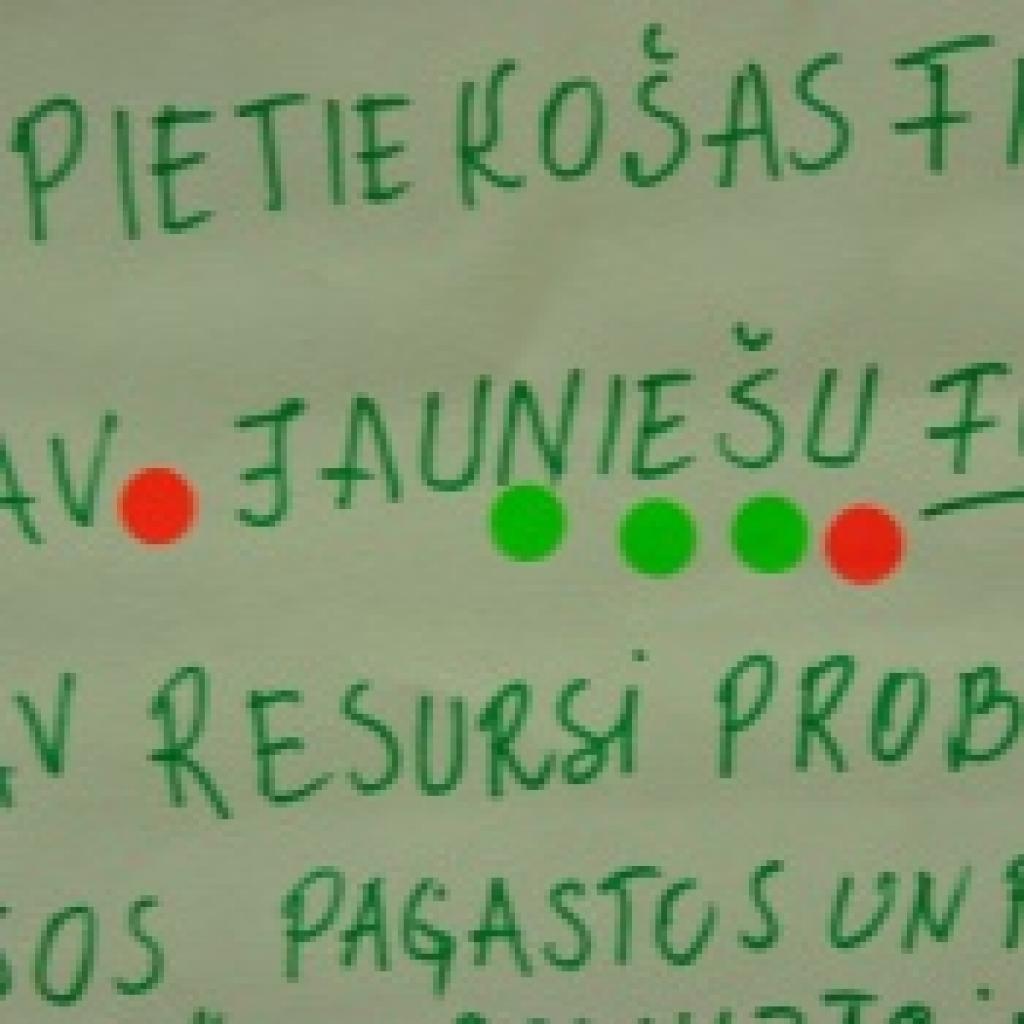 PIETIEKOŠAS FI
AV JAUNIEŠU
AV RESURSI PROB
SOS PAGASTOS UN